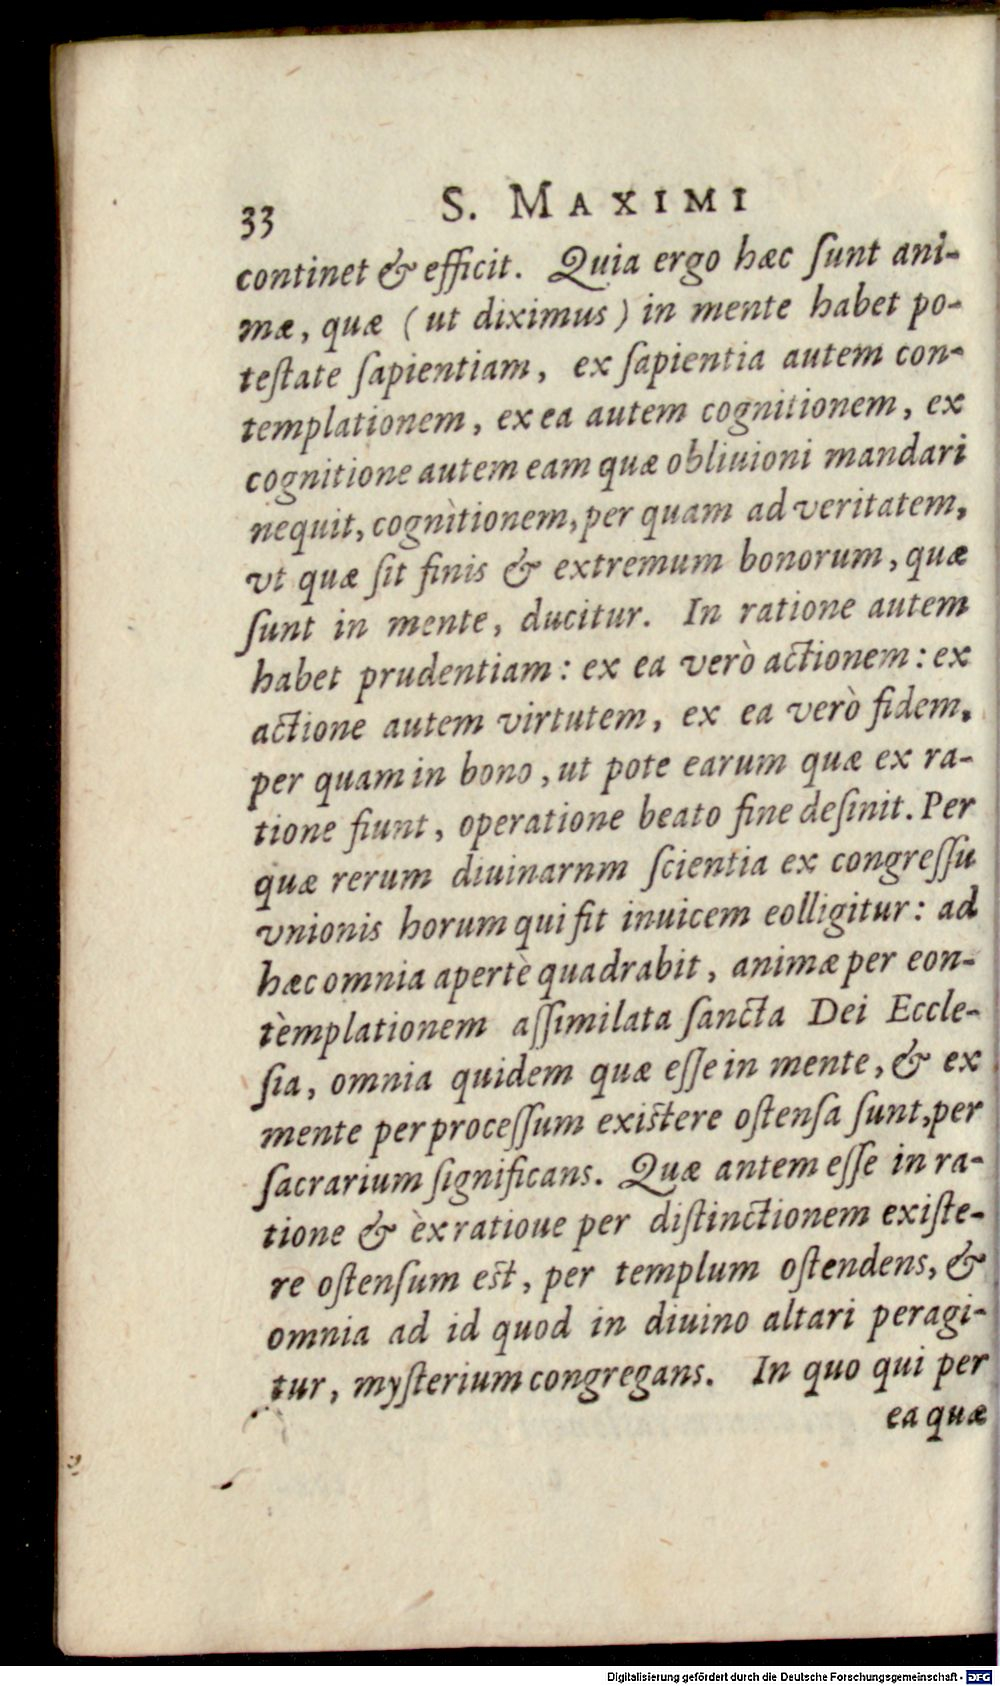 33 S. MAXIMI
continet & efficit. Quia ergo hæc ſunt ani-
mæ, quæ ( ut diximus ) in mente habet po-
teſtate ſapientiam, ex ſapientia autem con-
templationem, ex ea autem cognitionem, ex
cognitione autem eam quæ obliuioni mandari
nequit, cognìtionem, per quam ad veritatem,
vt quæ ſit finis & extremum bonorum, quæ
ſunt in mente, ducitur. In ratione autem
habet prudentiam: ex ea verò actionem: ex
actione autem virtutem, ex ea verò fidem,
per quam in bono, ut pote earum quæ ex ra-
tione fiunt, operatione beato fine deſinit. Per
quæ rerum diuinarnm ſcientia ex congreſſu
vnionis horum qui fit inuicem eolligitur: ad
hæc omnia apertè quadrabit, animæ per eon-
tèmplationem aſſimilata ſancta Dei Eccle-
ſia, omnia quidem quæ eſſe in mente, & ex
mente per proceſſum exiſtere oſtenſa ſunt, per
ſacrarium ſignificans. Quæ antem eſſe in ra-
tione & èx ratioue per diſtinctionem exiſte-
re oſtenſum eſt, per templum oſtendens, &
omnia ad id quod in diuino altari peragi-
tur, myſterium congregans. In quo qui per
ea quæ
Digitalisierung gefördert durch die Deutsche Forschungsgemeinschaft - DFG